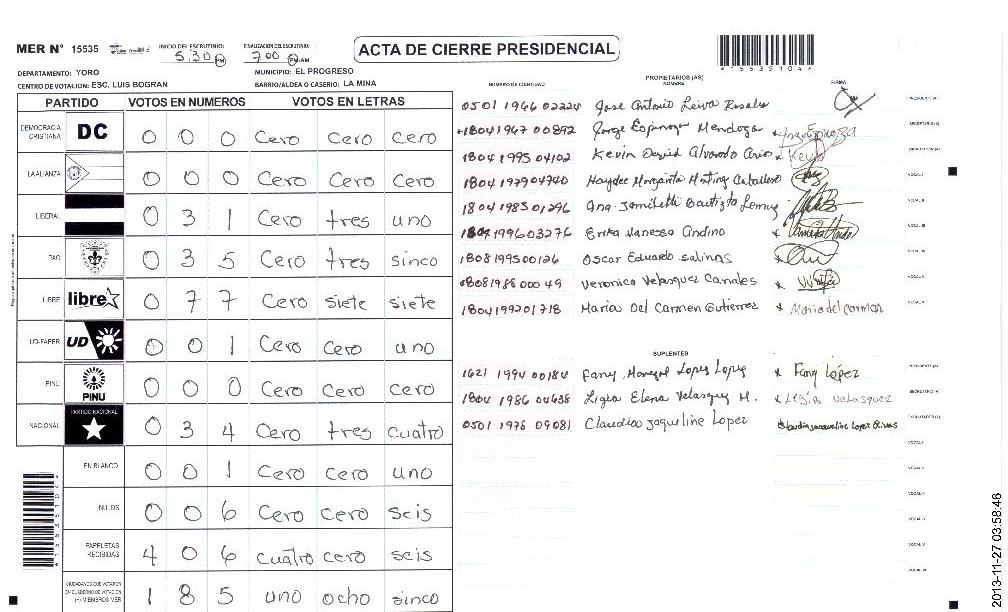 MER N° 15535 INICIO DEL ESCRUTINIO: 5:30 PM FINALIZACION DEL ESCRUTINIO: 7:00 PM/AM ACTA DE CIERRE PRESIDENCIAL *5535104*
DEPARTAMENTO: YORO MUNICIPIO: EL PROGRESO
CENTRO DE VOTACION: ESC. LUIS BOGRAN BARRIO/ALDEA O CASERIO: LA MINA
PARTIDO VOTOS EN NUMEROS VOTOS EN LETRAS
DEMOCRACIA CRISTIANA DC 0 0 0 Cero Cero Cero
LA ALIANZA 0 0 0 Cero Cero Cero
LIBERAL 0 3 1 Cero tres uno
PAC 0 3 5 Cero tres sinco
LIBRE libre 0 7 7 Cero siete siete
UD-FAPER UD 0 0 1 Cero Cero uno
PINU PINU 0 0 0 Cero Cero Cero
NACIONAL PARTIDO NACIONAL 0 3 4 Cero tres cuatro
EN BLANCO 0 0 1 Cero cero uno
NULOS 0 0 6 Cero Cero seis
PAPELETAS RECIBIDAS 4 0 6 cuatro cero seis
CIUDADANOS QUE VOTARON EN CUADERNO DE VOTACION (+) MIEMBROS MER 1 8 5 uno ocho sinco
NUMERO DE IDENTIDAD PROPIETARIOS (AS) NOMBRE FIRMA
0501 1966 02224 Jose Antonio Leiva Rosales PRESIDENTE (A)
1804 1967 00892 Jorge Espinoza Mendoza SECRETARIO (A)
1804 1995 04102 Kevin David Alvarado ESCRUTADOR (A)
1804 1979 04740 Haydee Margarita Caballero VOCAL I
1804 1983 01296 Ana Bautista VOCAL II
1804 1996 03276 Erika Vanessa Andino VOCAL III
1808 1995 00126 Oscar Eduardo Salinas VOCAL IV
1808 1986 000 49 Veronica Velasquez Canales VOCAL V
1804 1992 01718 Maria Del Carmen Gutierrez Maria del Carmen VOCAL VI
SUPLENTES
1621 1994 00184 Fany Lopez Lopez Fany López PRESIDENTE (A)
1804 1986 04638 Ligia Elena Velasquez M. Ligia Velasquez SECRETARIO (A)
0501 1978 09081 Claudia Jaqueline Lopez Claudia Jaqueline Lopez ESCRUTADOR (A)
VOCAL I
VOCAL II
VOCAL III
VOCAL IV
VOCAL V
VOCAL VI
2013-11-27 03:58:46